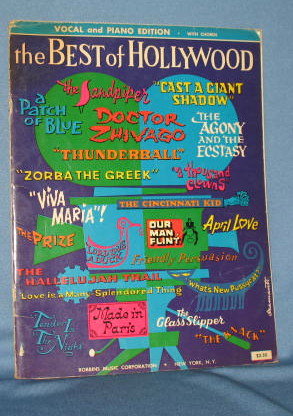 VOCAL and PIANO EDITION • WITH CHORDS
the BEST of HOLLYWOOD
the Sandpiper
"CAST A GIANT
SHADOW"
a
PATCH
OF BLUE
DOCTOR
ZHIVAGO
THE
AGONY
AND THE
ECSTASY
"THUNDERBALL"
"ZORBA THE GREEK"
"a thousand
clowns"
"VIVA
MARIA"!
THE CINCINNATI KID
THE
PRIZE
OUR
MAN
FLINT
April Love
Friendly Persuasion
THE
HALLELUJAH TRAIL
"What's New Pussycat?"
"Love is a Many-Splendored Thing"
Tender Is
The Night
Made in
Paris
The
Glass Slipper
"THE KNACK"
$2.50
ROBBINS MUSIC CORPORATION • NEW YORK, N.Y.